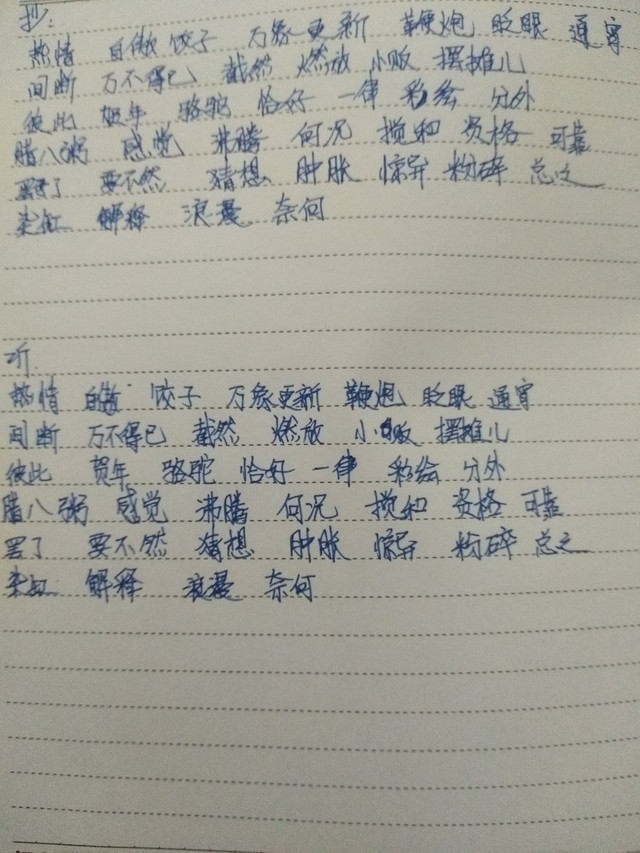 抄:
热情 自傲 饺子 万象更新 鞭炮 眨眼 通宵
间断 万不得已 截然 燃放 小贩 摆摊儿
彼此 贺年 骆驼 恰好 一律 彩绘 分外
腊八粥 感觉 沸腾 何况 搅和 资格 可靠
罢了 要不然 猜想 肿胀 惊异 粉碎 总之
染缸 解释 浪漫 奈何
听
热情 自傲 饺子 万象更新 鞭炮 眨眼 通宵
间断 万不得已 截然 燃放 小贩 摆摊儿
彼此 贺年 骆驼 恰好 一律 彩绘 分外
腊八粥 感觉 沸腾 何况 搅和 资格 可靠
罢了 要不然 猜想 肿胀 惊异 粉碎 总之
染缸 解释 浪漫 奈何